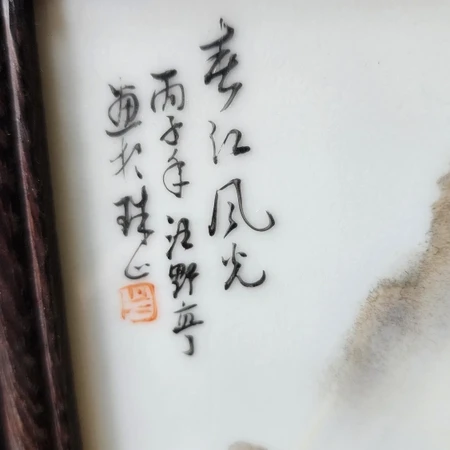 春江风光
丙子年汪野亭
画于珠山